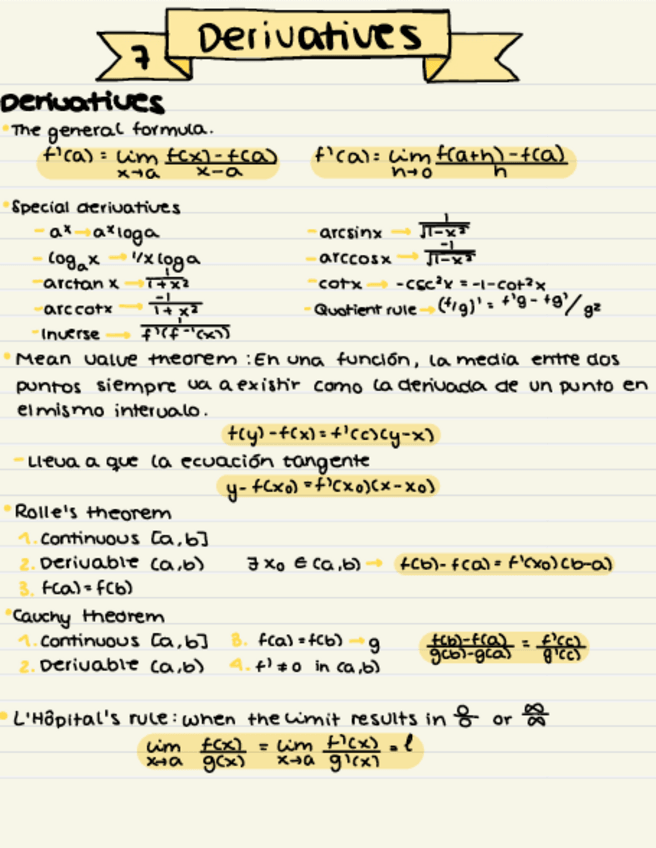 7 Derivatives
Derivatives
The general formula.
f'(a) = lim x→a f(x)-f(a) / x-a   f'(a) = lim h→0 f(a+h)-f(a) / h
Special derivatives
- a^x → a^x log a   - arcsinx → 1/√(1-x²)
- log_a x → 1/x log a   - arccosx → -1/√(1-x²)
- arctan x → 1/(1+x²)   - cotx → -csc²x = -1-cot²x
- arccotx → -1/(1+x²)   - Quotient rule → (f/g)' = f'g - fg' / g²
- Inverse → 1/f'(f⁻¹(x))
Mean value theorem: En una función, la media entre dos
puntos siempre va a existir como la derivada de un punto en
el mismo intervalo.
f(y) - f(x) = f'(c)(y-x)
- Lleva a que la ecuación tangente
y - f(x₀) = f'(x₀)(x-x₀)
Rolle's theorem
1. Continuous [a,b]
2. Derivable (a,b)   ∃ x₀ ∈ (a,b) → f(b) - f(a) = f'(x₀)(b-a)
3. f(a) = f(b)
Cauchy theorem
1. Continuous [a,b]   3. f(a) = f(b) → g   f(b)-f(a) / g(b)-g(a) = f'(c) / g'(c)
2. Derivable (a,b)   4. f' ≠ 0 in (a,b)
L'Hôpital's rule: when the limit results in 0/0 or ∞/∞
lim x→a f(x)/g(x) = lim x→a f'(x)/g'(x) = l